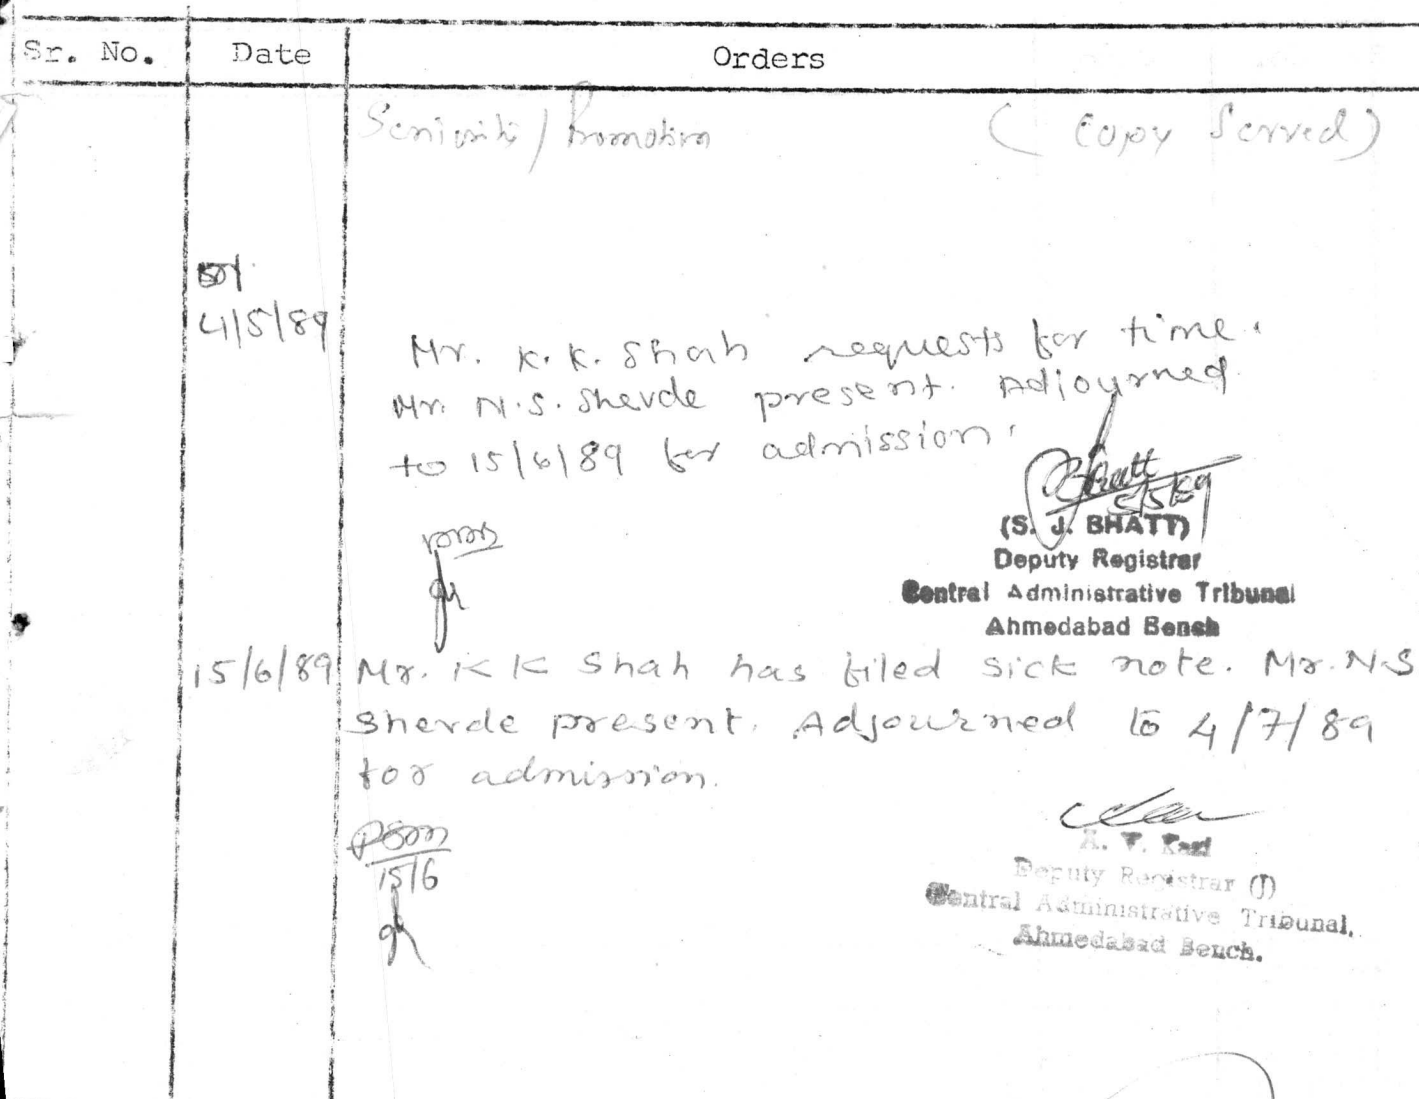 Sr. No. Date Orders
Seniority / Promotion (Copy Served)
4/5/89
Mr. K.K. Shah requests for time.
Mr. N.S. Shevde present. Adjourned
to 15/6/89 for admission.
5/5/89
(S. J. BHATT)
Deputy Registrar
Central Administrative Tribunal
Ahmedabad Bench
15/6/89 Mr. K K Shah has filed sick note. Mr. N.S
Shevde present. Adjourned to 4/7/89
for admission.
15/6
Deputy Registrar (J)
Central Administrative Tribunal,
Ahmedabad Bench.